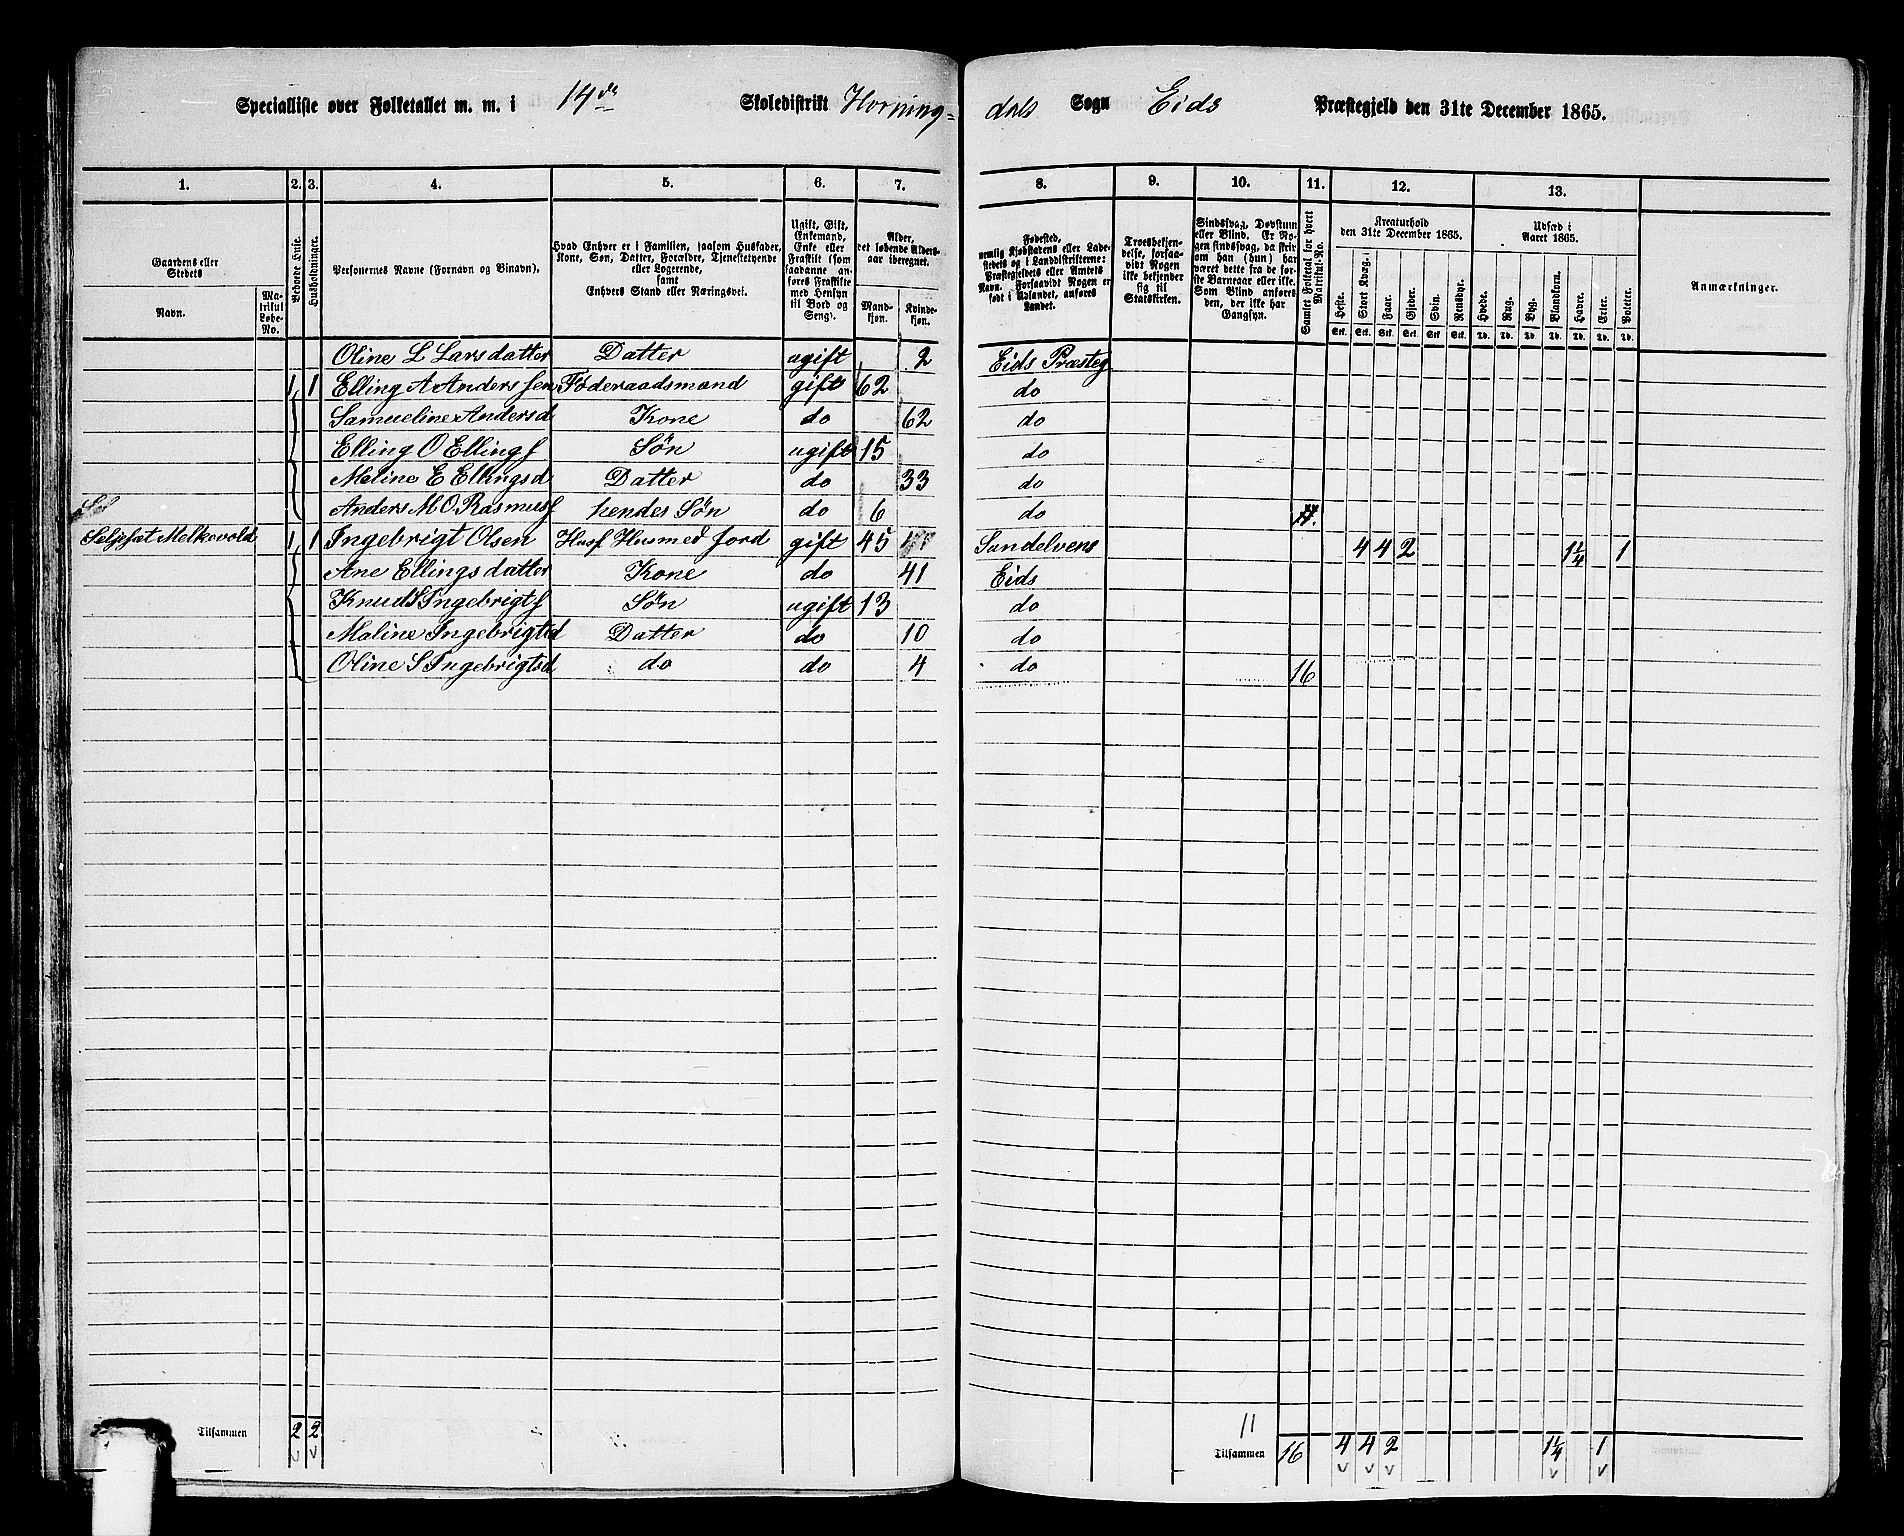 Specialliste over Folketallet m. m. i 14de Skoledistrikt Horning= dals Sogn Eids Præstegjeld den 31te December 1865.
1. 2. 3. 4. 5. 6. 7. 8. 9. 10. 11. 12. 13.
Gaardens eller Stedets
Navn.
Matrikul Løbe-No.
Beboede Huse.
Husholdninger.
Personernes Navne (Fornavn og Binavn).
Hvad Enhver er i Familien, saasom Husfader, Kone, Søn, Datter, Forældre, Tjenestetyende eller Logerende,
samt
Enhvers Stand eller Næringsvei.
Ugift, Gift, Enkemand, Enke eller Fraskilt (som saadanne anføres Fraskilte med Hensyn til Bord og Seng).
Alder, det løbende Aldersaar iberegnet.
Mandkjøn.
Kvindekjøn.
Fødested,
nemlig Kjøbstadens eller Ladestedets og i Landdistrikterne: Præstegjeldets eller Amtets Navn. Forsaavidt Nogen er født i Udlandet, anføres Landet.
Troesbekjendelse, forsaavidt Nogen ikke bekjender sig til Statskirken.
Sindssvag, Døvstum eller Blind. Er Nogen sindssvag, da skrives om han (hun) har været dette fra de første Barneaar eller ikke. Som Blind anføres den, der ikke har Gangsyn.
Samlet Folketal for hvert Matrikul-No.
Kreaturhold
den 31te December 1865.
Heste. Stort Kvæg. Faar. Gjeder. Svin. Rensdyr.
Sct. Sct. Sct. Sct. Sct. Sct.
Udsæd i
Aaret 1865.
Hvede. Rug. Byg. Blandkorn. Havre. Erter. Poteter.
Td. Td. Td. Td. Td. Td. Td.
Anmærkninger.
Oline L Larsdatter Datter ugift 2 Eids Præsteg
1 1 Elling A Anderssen Føderaadsmand gift 62 do
Samueline Andersd Kone do 62 do
Elling O Ellings Søn ugift 15 do
Maline E Ellingsd Datter do 33 do
Anders M O Rasmuss hendes Søn do 6 do
Seljesæt Melkevold 1 1 Ingebrigt Olsen Husf Husmed Jord gift 45 Sundelvens 4 4 2 1¼ 1
Ane Ellingsdatter Kone do 41 Eids
Knud S Ingebrigts Søn ugift 13 do
Maline Ingebrigtsd Datter do 10 do
Oline S Ingebrigtsd do do 4 do 16
Tilsammen 2 2
11
Tilsammen 16 4 4 2 1¼ 1